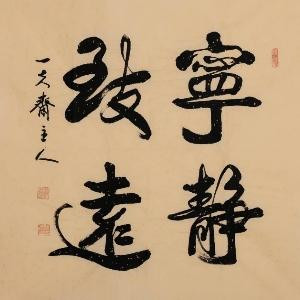 寧靜
致遠
一天齋主人